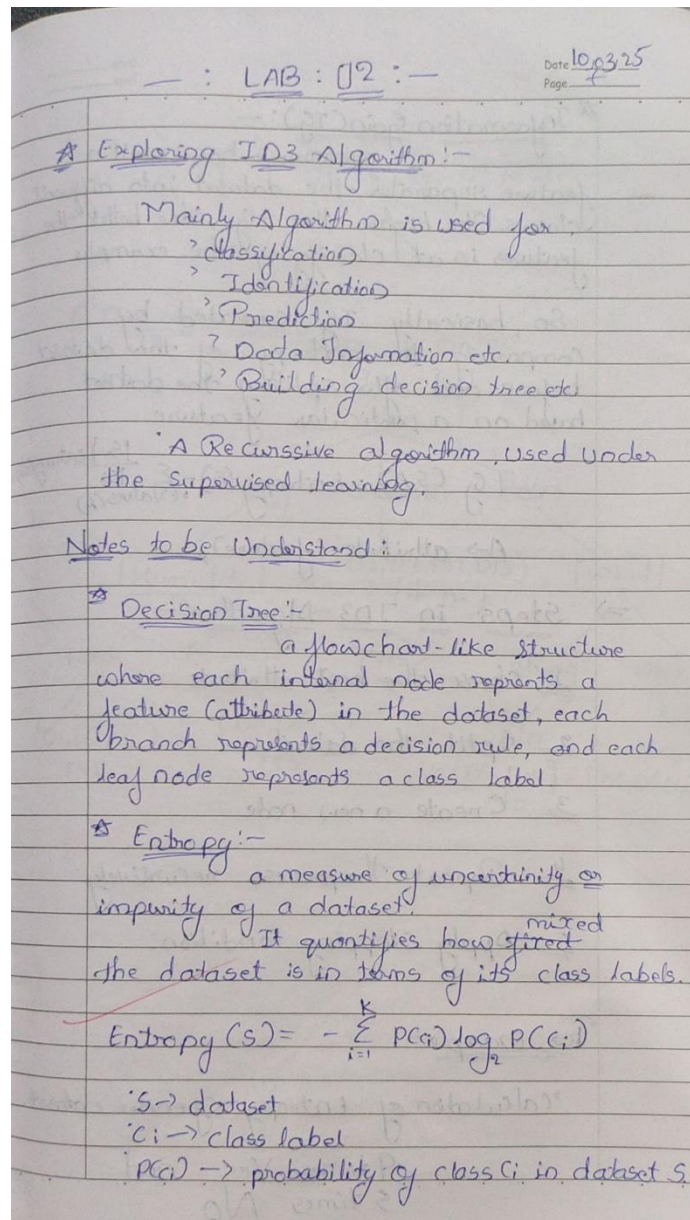 — : LAB : 02 : —
Date 10,03,25
Page 7
☆ Exploring ID3 Algorithm :-
Mainly Algorithm is used for :
> classification
> Identification
> Prediction
> Data Information etc.
> Building decision tree etc.
· A Recurssive algorithm, used under
the supervised learning.
Notes to be Understand :
☆ Decision Tree :-
a flowchart-like structure
where each internal node reprents a
feature (attribute) in the dataset, each
branch represents a decision rule, and each
leaf node represents a class label
☆ Entropy :-
a measure of uncertinity or
impurity of a dataset.
It quantifies how fixed mixed
the dataset is in terms of its class labels.
Entropy (S) = - K Σ i=1 P(ci) log2 P(Ci)
· S → dataset
· Ci → class label
· P(ci) → probability of class Ci in dataset S